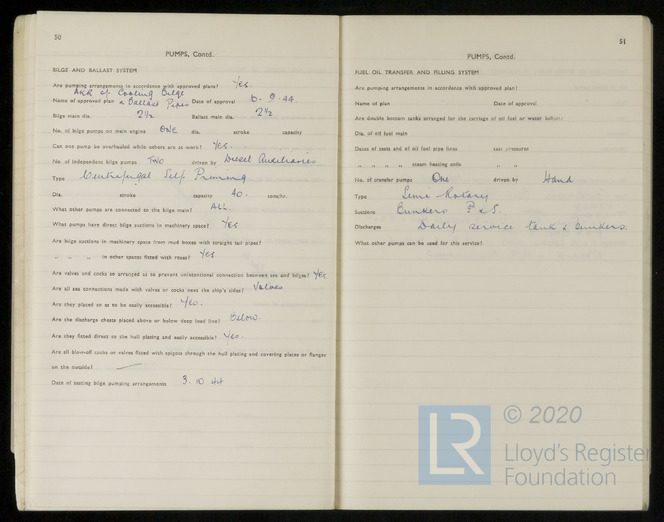 50
PUMPS, Contd.
BILGE AND BALLAST SYSTEM
Are pumping arrangements in accordance with approved plans? Yes.
Cooling Bilge
Name of approved plan & Ballast Pipes Date of approval 6. 9. 44.
Bilge main dia. 2½ Ballast main dia. 2½
No. of bilge pumps on main engine ONE dia. stroke capacity
Can one pump be overhauled while others are at work? Yes.
No. of independent bilge pumps TWO driven by Diesel Auxiliaries
Type Centrifugal Self Priming
Dia. stroke capacity 40. tons/hr.
What other pumps are connected to the bilge main? ALL.
What pumps have direct bilge suctions in machinery space? Yes
Are bilge suctions in machinery space from mud boxes with straight tail pipes?
„ „ „ in other spaces fitted with roses? Yes
Are valves and cocks so arranged as to prevent unintentional connection between sea and bilges? Yes
Are all sea connections made with valves or cocks next the ship's sides? Valves
Are they placed so as to be easily accessible? Yes.
Are the discharge chests placed above or below deep load line? Below.
Are they fitted direct to the hull plating and easily accessible? Yes.
Are all blow-off cocks or valves fitted with spigots through the hull plating and covering plates or flanges
on the outside?
Date of testing bilge pumping arrangements 3. 10 44
51
PUMPS, Contd.
FUEL OIL TRANSFER AND FILLING SYSTEM
Are pumping arrangements in accordance with approved plan?
Name of plan Date of approval
Are double bottom tanks arranged for the carriage of oil fuel or water ballast?
Dia. of oil fuel main
Dates of tests and of oil fuel pipe lines test pressures
„ „ „ „ steam heating coils „ „
No. of transfer pumps One driven by Hand
Type Semi-Rotary
Suctions Bunkers P & S.
Discharges Daily service tank & bunkers.
What other pumps can be used for this service?
LR
© 2020
Lloyd's Register
Foundation